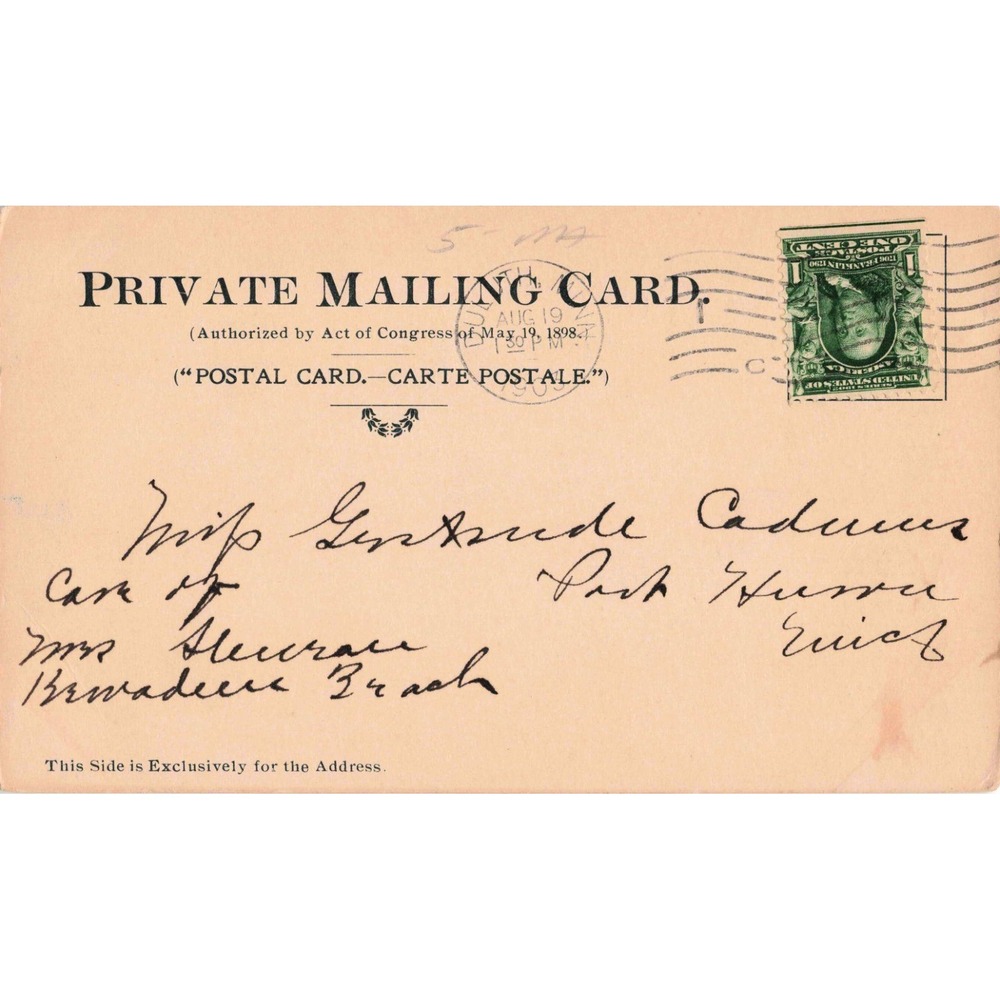 5-
PRIVATE MAILING CARD.
(Authorized by Act of Congress of May 19, 1898.)
("POSTAL CARD.—CARTE POSTALE.")
DULUTH, MINN.
AUG 19
1 30 PM
1903
ONE CENT
POSTAGE
1706 FRANKLIN 1790
1 1
SERIES 1902
UNITED STATES OF
AMERICA
Miss Gertrude Cadmus
Care of
Port Huron
Mich
Mrs
Beach
This Side is Exclusively for the Address.